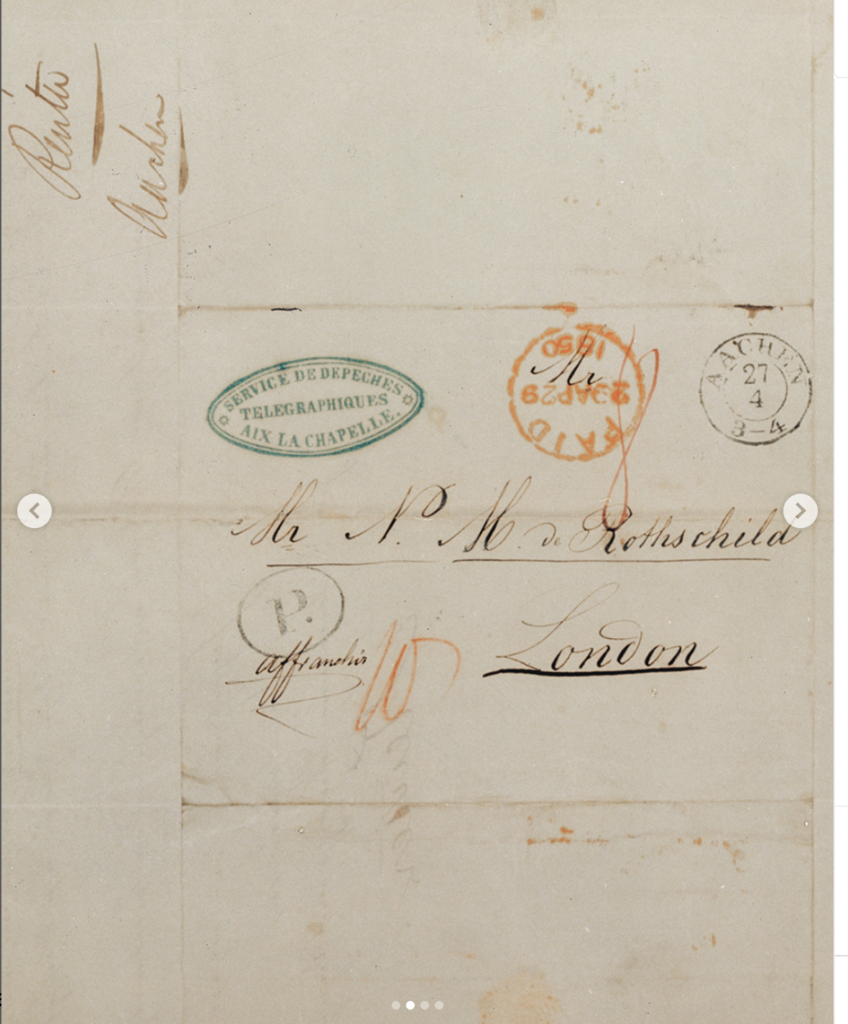 Reuter
Aachen
SERVICE DE DEPECHES
TELEGRAPHIQUES
AIX LA CHAPELLE.
PAID
29 AP 29
1850
AACHEN
27
4
3–4
Mr
Mr N. M. de Rothschild
P.
affranchir
10
London